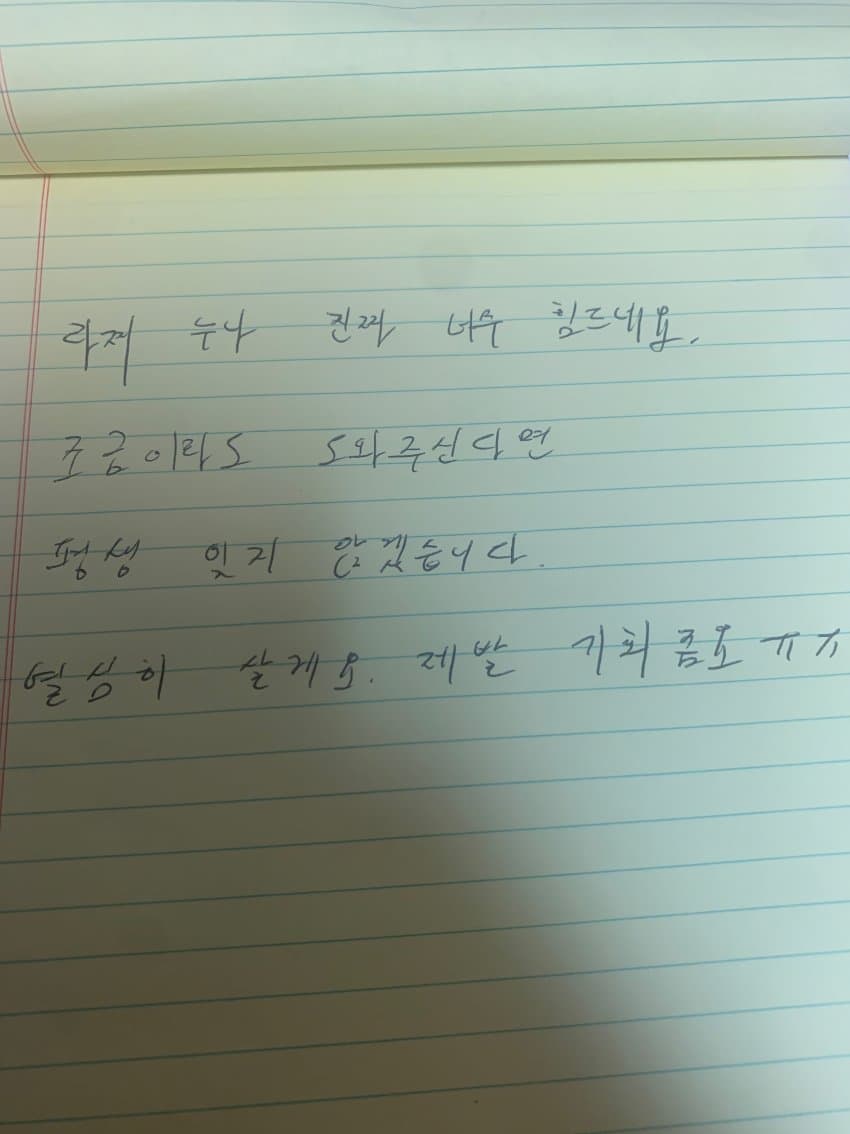 라쩌 누나 진짜 너무 힘드네요.
조금이라도 도와주신다면
평생 잊지 않겠습니다.
열심히 살게요. 제발 기회좀요 ㅠㅠ